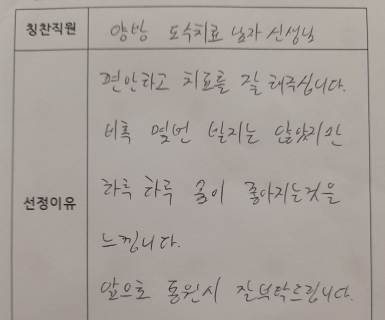 칭찬직원
양방 도수치료 남자 선생님
선정이유
편안하고 치료를 잘 해주십니다.
비록 몇번 받지는 않았지만
하루 하루 몸이 좋아지는것을
느낍니다.
앞으로 통원시 잘부탁드립니다.